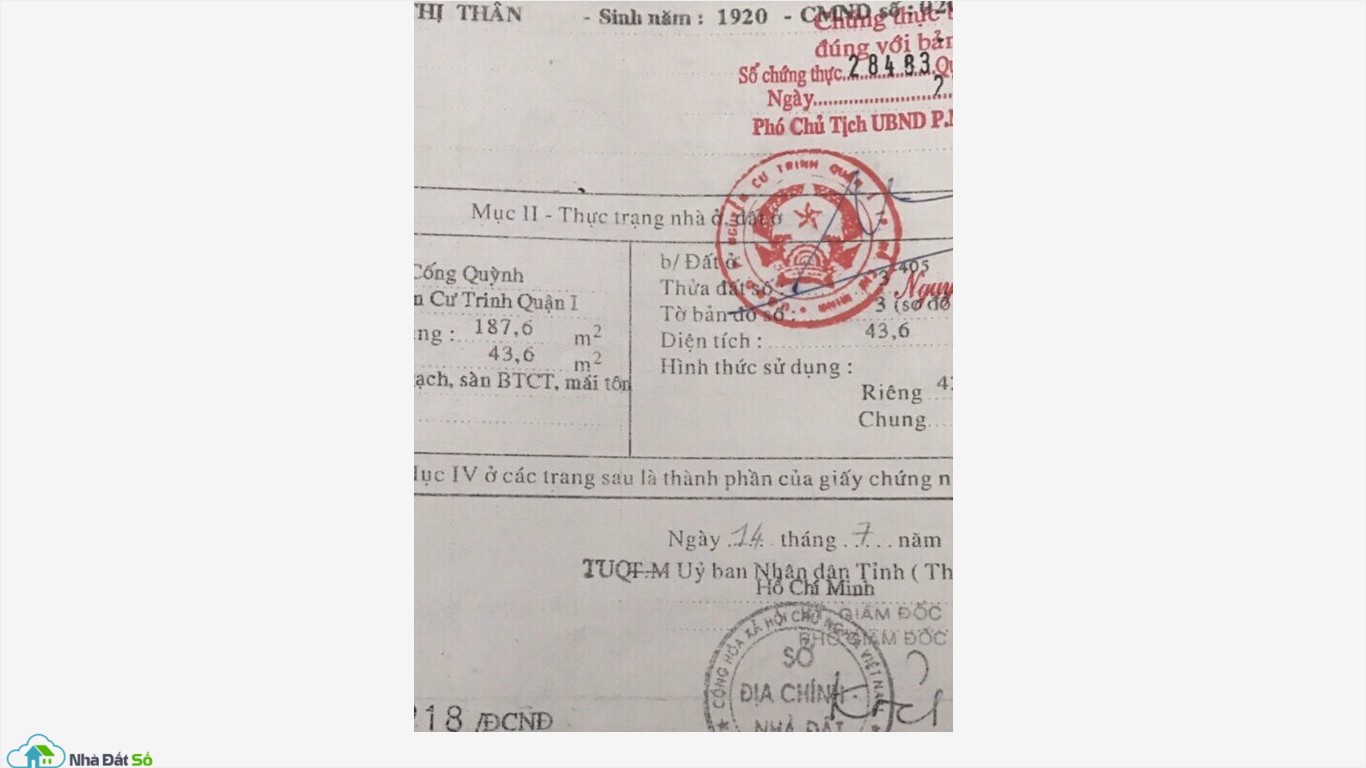 THỊ THÂN - Sinh năm : 1920 - CMND số :
Chứng thực
đúng với bản
Số chứng thực 28483 Qu
Ngày
Phó Chủ Tịch UBND P.
NGUYỄN CƯ TRINH QUẬN 1
Mục II - Thực trạng nhà ở, đất ở
Cống Quỳnh
n Cư Trinh Quận I
ng : 187,6 m2
43,6 m2
ạch, sàn BTCT, mái tôn
b/ Đất ở
Thửa đất số : 3-405
Nguy
Tờ bản đồ số : 3 (sơ đồ
Diện tích : 43,6
Hình thức sử dụng :
Riêng 4
Chung
Mục IV ở các trang sau là thành phần của giấy chứng n
Ngày 14 tháng 7 năm
TUQ T.M Uỷ ban Nhân dân Tỉnh ( Th
Hồ Chí Minh
GIÁM ĐỐC
PHÓ GIÁM ĐỐC
CỘNG HÒA XÃ HỘI CHỦ NGHĨA VIỆT NAM
SỞ
ĐỊA CHÍNH -
NHÀ ĐẤT
218 /ĐCNĐ
Nhà Đất Số